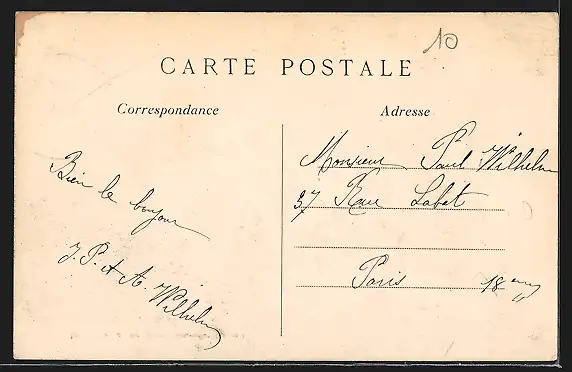 10
CARTE POSTALE
Correspondance
Adresse
Bien le bonjour
J. P. et A. Wilhelm
Monsieur Paul Wilhelm
37 Rue Labat
Paris 18 em